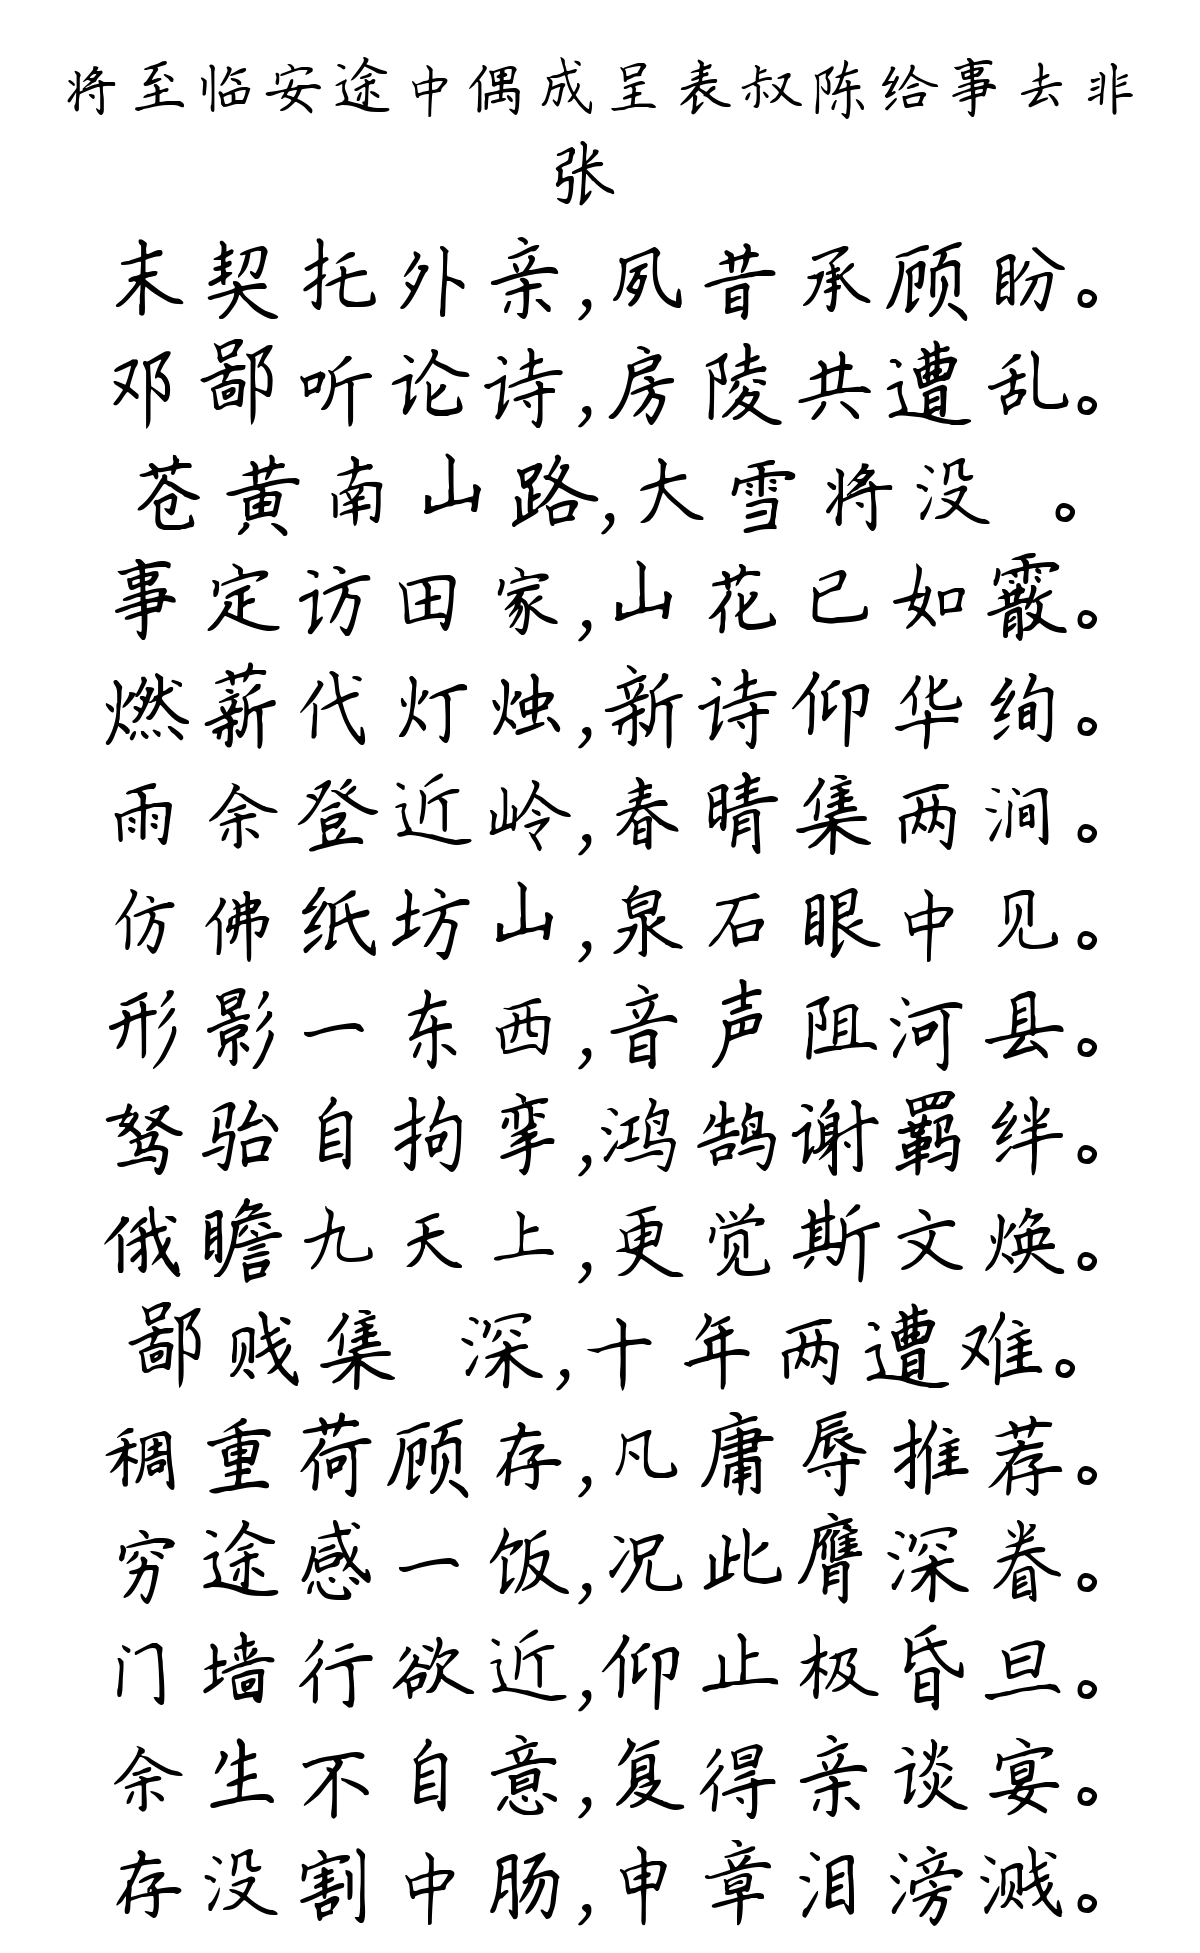 将至临安途中偶成呈表叔陈给事去非
张
末契托外亲,夙昔承顾盼。
邓鄙听论诗,房陵共遭乱。
苍黄南山路,大雪将没 。
事定访田家,山花已如霰。
燃薪代灯烛,新诗仰华绚。
雨余登近岭,春晴集两涧。
仿佛纸坊山,泉石眼中见。
形影一东西,音声阻河县。
驽骀自拘挛,鸿鹄谢羁绊。
俄瞻九天上,更觉斯文焕。
鄙贱集 深,十年两遭难。
稠重荷顾存,凡庸辱推荐。
穷途感一饭,况此膺深眷。
门墙行欲近,仰止极昏旦。
余生不自意,复得亲谈宴。
存没割中肠,申章泪滂溅。